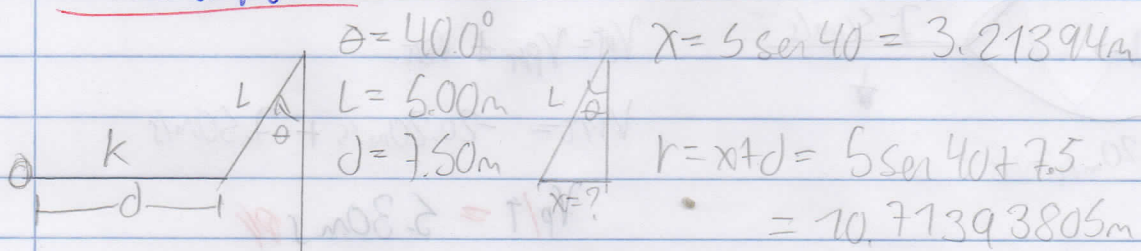 θ = 40.0°
L = 5.00m
d = 7.50m
L
θ
k
d
L
θ
x=?
x = 5 sen 40 = 3.21394m
r = x+d = 5 sen 40 + 7.5
= 10.71393805m